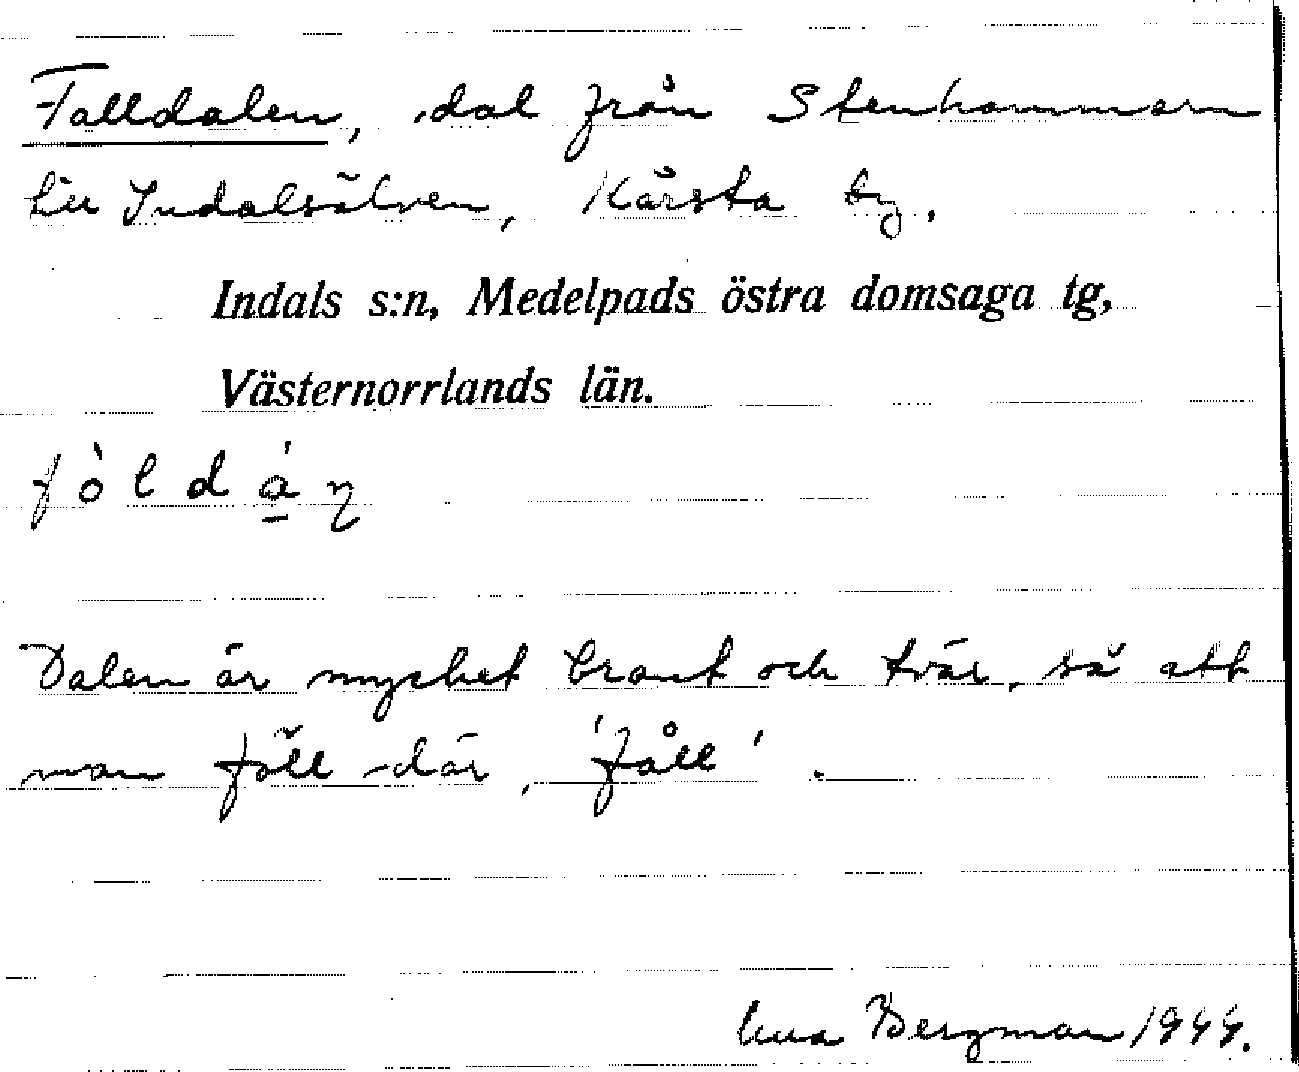 Falldalen, dal från Stenhammarn
till Indalsälven, Kärsta by.
Indals s:n, Medelpads östra domsaga tg,
Västernorrlands län.
fòldáṇ
Dalen är mycket brant och tvär, så att
man föll där, 'fåll'.
Bergman 1944.